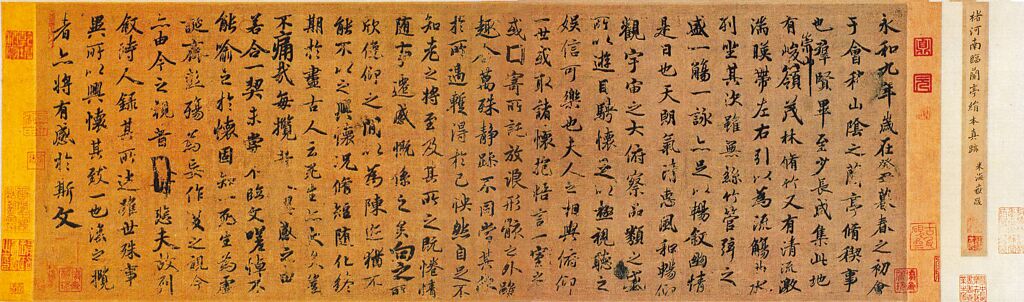 褚河南臨蘭亭絹本真蹟 米海嶽跋
永和九年歲在癸丑暮春之初會
于會稽山陰之蘭亭脩稧事
也羣賢畢至少長咸集此地
有崇山峻領茂林脩竹又有清流激
湍暎帶左右引以為流觴曲水
列坐其次雖無絲竹管弦之
盛一觴一詠亦足以暢敘幽情
是日也天朗氣清惠風和暢仰
觀宇宙之大俯察品類之盛
所以遊目騁懷足以極視聽之
娛信可樂也夫人之相與俯仰
一世或取諸懷抱悟言一室之
或因寄所託放浪形骸之外雖
趣舍萬殊靜躁不同當其欣
於所遇蹔得於己怏然自足不
知老之將至及其所之既惓情
隨事遷感慨係之矣向之所
欣俛仰之閒以為陳迹猶不
能不以之興懷況脩短隨化終
期於盡古人云死生亦大矣豈
不痛哉每攬昔人興感之由
若合一契未嘗不臨文嗟悼不
能喻之於懷固知一死生為虛
誕齊彭殤為妄作後之視今
亦由今之視昔悲夫故列
敘時人錄其所述雖世殊事
異所以興懷其致一也後之攬
者亦將有感於斯文